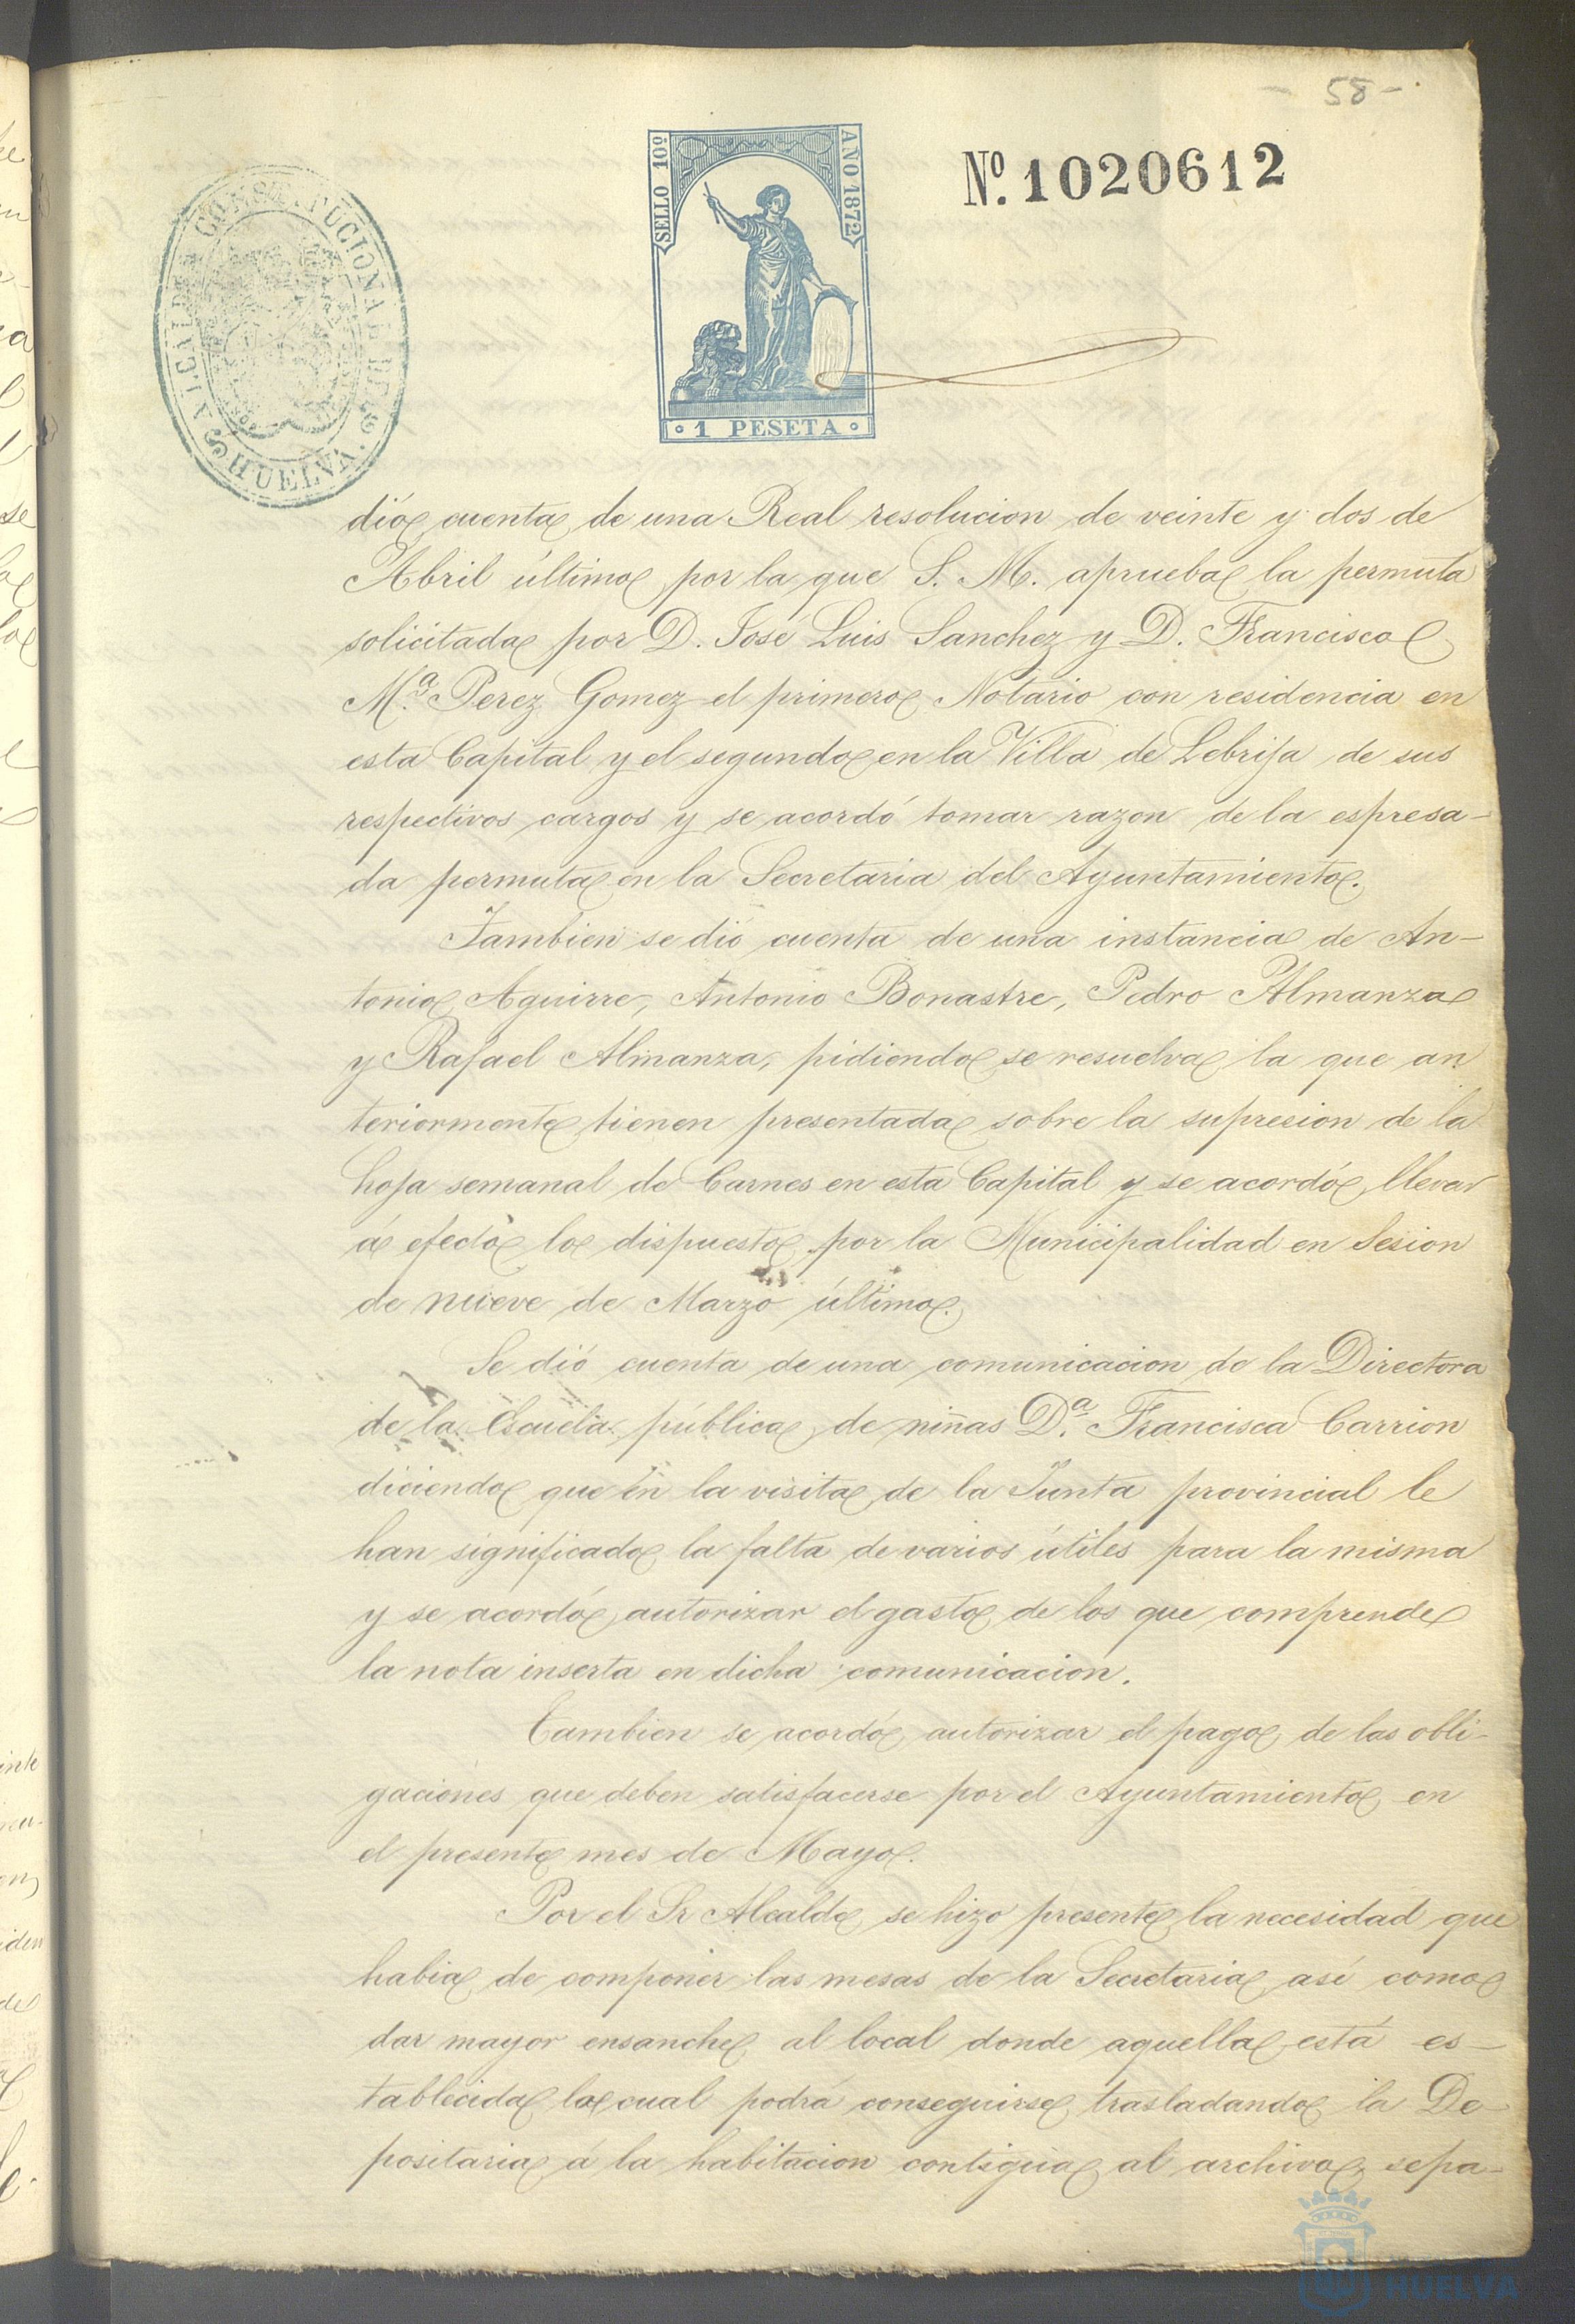 58-
SELLO 10º
AÑO 1872
Nº. 1020612
ALCALDIA CONSTITUCIONAL DE HUELVA.
1 PESETA
dió cuenta de una Real resolucion de veinte y dos de
Abril último por la que S. M. aprueba la permuta
solicitada por D. José Luis Sanchez y D. Francisco
M.ª Perez Gomez el primero Notario con residencia en
esta Capital y el segundo en la Villa de Lebrija de sus
respectivos cargos y se acordó tomar razon de la espresa-
da permuta en la Secretaría del Ayuntamiento.
Tambien se dió cuenta de una instancia de An-
tonio Aguirre, Antonio Bonastre, Pedro Almanza
y Rafael Almanza, pidiendo se resuelva la que an
teriormente tienen presentada sobre la supresion de la
hoja semanal de Carnes en esta Capital y se acordó llevar
á efecto lo dispuesto por la Municipalidad en Sesion
de nueve de Marzo último.
Se dió cuenta de una comunicacion de la Directora
de la Escuela pública de niñas D.ª Francisca Carrion
diciendo que en la visita de la Junta provincial le
han significado la falta de varios útiles para la misma
y se acordó autorizar el gasto de los que comprende
la nota inserta en dicha comunicacion.
Tambien se acordó autorizar el pago de las obli-
gaciones que deben satisfacerse por el Ayuntamiento en
el presente mes de Mayo.
Por el Sr Alcalde se hizo presente la necesidad que
habia de componer las mesas de la Secretaria así como
dar mayor ensanche al local donde aquella está es-
tablecida lo cual podrá conseguirse trasladando la De-
positaria á la habitacion contigua al archivo, sepa-
HUELVA